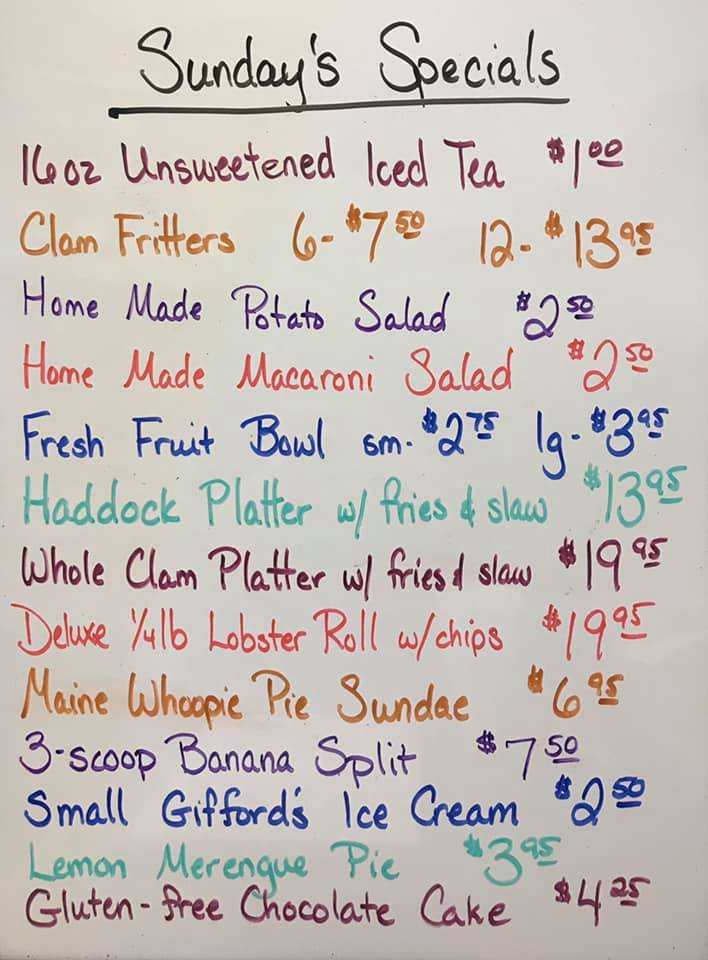 Sunday's Specials
16oz Unsweetened Iced Tea $1.00
Clam Fritters 6-$7.50 12-$13.95
Home Made Potato Salad $2.50
Home Made Macaroni Salad $2.50
Fresh Fruit Bowl sm-$2.75 lg-$3.95
Haddock Platter w/ fries & slaw $13.95
Whole Clam Platter w/ fries & slaw $19.95
Deluxe 1/4lb Lobster Roll w/chips $19.95
Maine Whoopie Pie Sundae $6.95
3-scoop Banana Split $7.50
Small Gifford's Ice Cream $2.50
Lemon Merengue Pie $3.95
Gluten-free Chocolate Cake $4.25